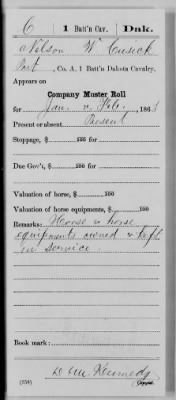 C | 1 Batt'n Cav. | Dak.
Nelson W Cusick
Pvt., Co. A, 1 Batt'n Dakota Cavalry.
Appears on
Company Muster Roll
for Jan. & Feb., 1863
Present or absent Present
Stoppage, $ 100 for
Due Gov't, $ 100 for
Valuation of horse, $ 100
Valuation of horse equipments, $ 100
Remarks: Horse & horse
equipments owned & kept
in service.
Book mark:
Kennedy
(358) Copyist.